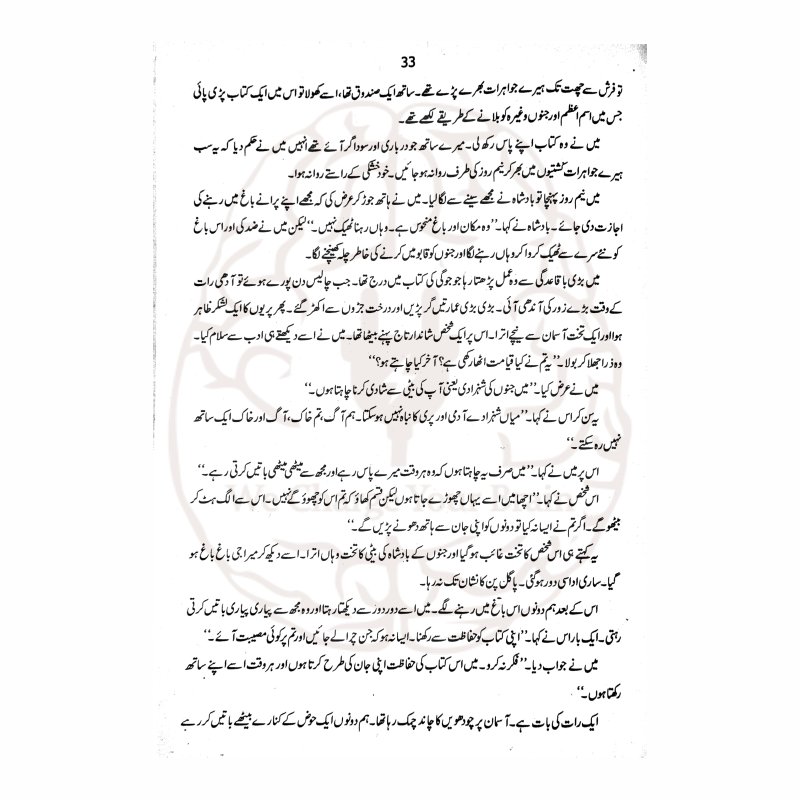 33
تو فرش سے چھت تک ہیرے جواہرات بھرے پڑے تھے۔ ساتھ ایک صندوق تھا، اسے کھولا تو اس میں ایک کتاب پڑی پائی
جس میں اسم اعظم اور جنوں وغیرہ کو بلانے کے طریقے لکھے تھے۔
میں نے وہ کتاب اپنے پاس رکھ لی۔ میرے ساتھ جو درباری اور سوداگر آئے تھے انہیں میں نے حکم دیا کہ یہ سب
ہیرے جواہرات کشتیوں میں بھر کر نیم روز کی طرف روانہ ہو جائیں۔ خود خشکی کے راستے روانہ ہوا۔
میں نیم روز پہنچا تو بادشاہ نے مجھے سینے سے لگا لیا۔ میں نے ہاتھ جوڑ کر عرض کی کہ مجھے اپنے پرانے باغ میں رہنے کی
اجازت دی جائے۔ بادشاہ نے کہا۔ ’’وہ مکان اور باغ منحوس ہے۔ وہاں رہنا ٹھیک نہیں۔‘‘ لیکن میں نے ضد کی اور اس باغ
کو نئے سرے سے ٹھیک کروا کر وہاں رہنے لگا اور جنوں کو قابو میں کرنے کی خاطر چلہ کھینچنے لگا۔
میں بڑی باقاعدگی سے وہ عمل پڑھتا رہا جو جوگی کی کتاب میں درج تھا۔ جب چالیس دن پورے ہوئے تو آدھی رات
کے وقت بڑے زور کی آندھی آئی۔ بڑی بڑی عمارتیں گر پڑیں اور درخت جڑوں سے اکھڑ گئے۔ پھر پریوں کا ایک لشکر ظاہر
ہوا اور ایک تخت آسمان سے نیچے اترا۔ اس پر ایک شخص شاندار تاج پہنے بیٹھا تھا۔ میں نے اسے دیکھتے ہی ادب سے سلام کیا۔
وہ ذرا جھلا کر بولا۔ ’’یہ تم نے کیا قیامت اٹھا رکھی ہے؟ آخر کیا چاہتے ہو؟‘‘
میں نے عرض کیا۔ ’’میں جنوں کی شہزادی یعنی آپ کی بیٹی سے شادی کرنا چاہتا ہوں۔‘‘
یہ سن کر اس نے کہا۔ ’’میاں شہزادے آدمی اور پری کا نباہ نہیں ہو سکتا۔ ہم آگ، تم خاک، آگ اور خاک ایک ساتھ
نہیں رہ سکتے۔‘‘
اس پر میں نے کہا۔ ’’میں صرف یہ چاہتا ہوں کہ وہ ہر وقت میرے پاس رہے اور مجھ سے میٹھی میٹھی باتیں کرتی رہے۔‘‘
اس شخص نے کہا۔ ’’اچھا میں اسے یہاں چھوڑے جاتا ہوں لیکن قسم کھاؤ کہ تم اس کو چھوؤ گے نہیں۔ اس سے الگ ہٹ کر
بیٹھو گے۔ اگر تم نے ایسا نہ کیا تو دونوں کو اپنی جان سے ہاتھ دھونے پڑیں گے۔‘‘
یہ کہتے ہی اس شخص کا تخت غائب ہو گیا اور جنوں کے بادشاہ کی بیٹی کا تخت وہاں اترا۔ اسے دیکھ کر میرا جی باغ باغ ہو
گیا۔ ساری اداسی دور ہو گئی۔ پاگل پن کا نشان تک نہ رہا۔
اس کے بعد ہم دونوں اس باغ میں رہنے لگے۔ میں اسے دور دور سے دیکھتا رہتا اور وہ مجھ سے پیاری پیاری باتیں کرتی
رہتی۔ ایک بار اس نے کہا۔ ’’اپنی کتاب کو حفاظت سے رکھنا۔ ایسا نہ ہو کہ جن چرا لے جائیں اور تم پر کوئی مصیبت آئے۔‘‘
میں نے جواب دیا۔ ’’فکر نہ کرو۔ میں اس کتاب کی حفاظت اپنی جان کی طرح کرتا ہوں اور ہر وقت اسے اپنے ساتھ
رکھتا ہوں۔‘‘
ایک رات کی بات ہے۔ آسمان پر چودھویں کا چاند چمک رہا تھا۔ ہم دونوں ایک حوض کے کنارے بیٹھے باتیں کر رہے